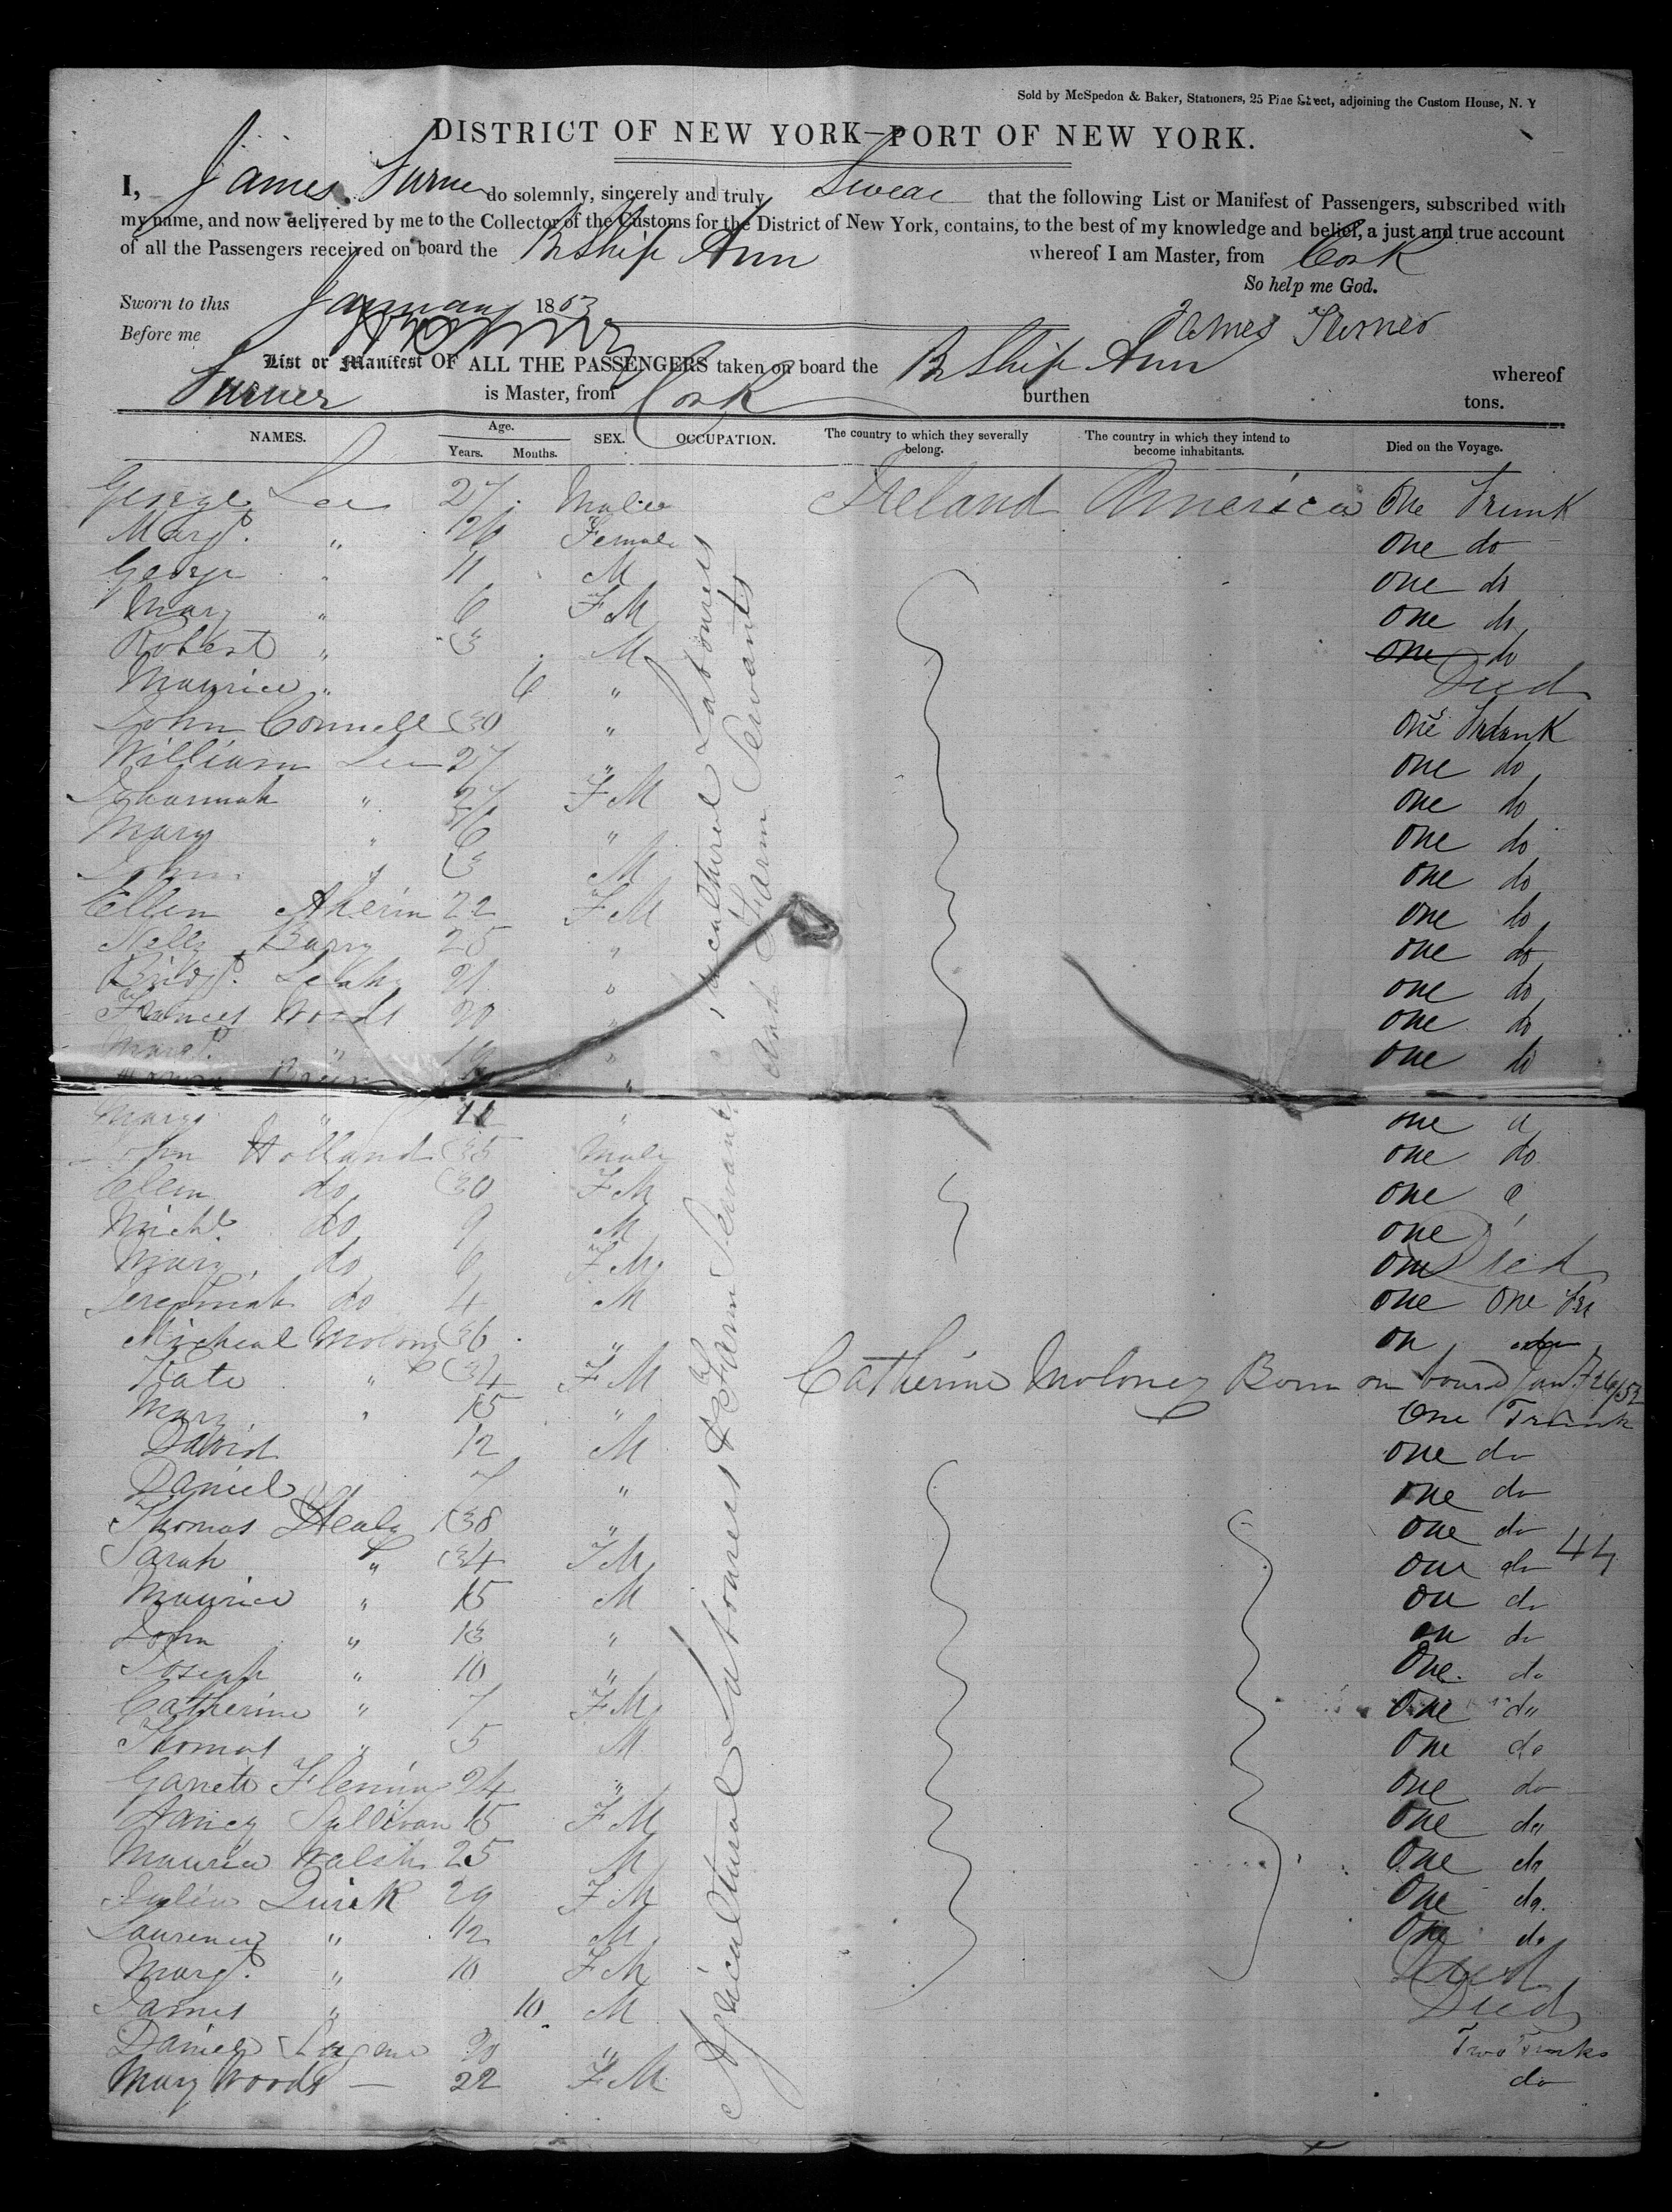 Sold by McSpedon & Baker, Stationers, 25 Pine Street, adjoining the Custom House, N. Y
DISTRICT OF NEW YORK—PORT OF NEW YORK.
I, James Turner do solemnly, sincerely and truly Swear that the following List or Manifest of Passengers, subscribed with
my name, and now delivered by me to the Collector of the Customs for the District of New York, contains, to the best of my knowledge and belief, a just and true account
of all the Passengers received on board the Br Ship Ann whereof I am Master, from Cork
So help me God.
Sworn to this January 1853
James Turner
Before me
List or Manifest OF ALL THE PASSENGERS taken on board the Br Ship Ann whereof
Turner is Master, from Cork burthen tons.
NAMES. Age. Years. Months. SEX. OCCUPATION. The country to which they severally belong. The country in which they intend to become inhabitants. Died on the Voyage.
George Lee 27 Male Ireland America One Trunk
Margt. " 26 Female one do
George " 11 M one do
Mary " 6 FM one do
Robert " 3 M one do
Maurice " 6 " Died
John Connell 30 " one Trunk
William Lee 27 " one do
Johannah " 27 FM one do
Mary " 6 " one do
John " 3 M one do
Ellen Aherin 22 FM one do
Nelly Barry 25 " one do
Bridgt. 21 " one do
Frances Woods 20 " one do
Margt. " 19 " one do
Brien "
Mary " 11 " one
John Holland 35 Male one do
Ellen do 30 FM one
Michl. do 9 M one
Mary do 6 FM Died
Jeremiah do 4 M one One
Micheal Molony 36 "
Kate " 34 FM Catherine Moloney Born on board Jany 26/53
Mary " 15 " One Trunk
David 12 M one do
Daniel 7 " one do
Thomas Healy 38 " one do
Sarah " 34 FM one do 44
Maurice " 15 M one do
John " 13 " one do
Joseph " 10 " One do
Catherine " 7 FM One do
Thomas " 5 M One do
Garrett Fleming 24 " One do
Nancy Sullivan 15 FM One do
Maurice Walsh 25 M One do
Julia Quirk 29 FM One do
Laurence " 12 M One do
Margt. " 10 FM Died
James " 10 M Died
Daniel 20 " Two Trunks
Mary Woods — 22 FM do
Agricultural Labourers & Farm Servants
Agricultural Labourers
and Farm Servants